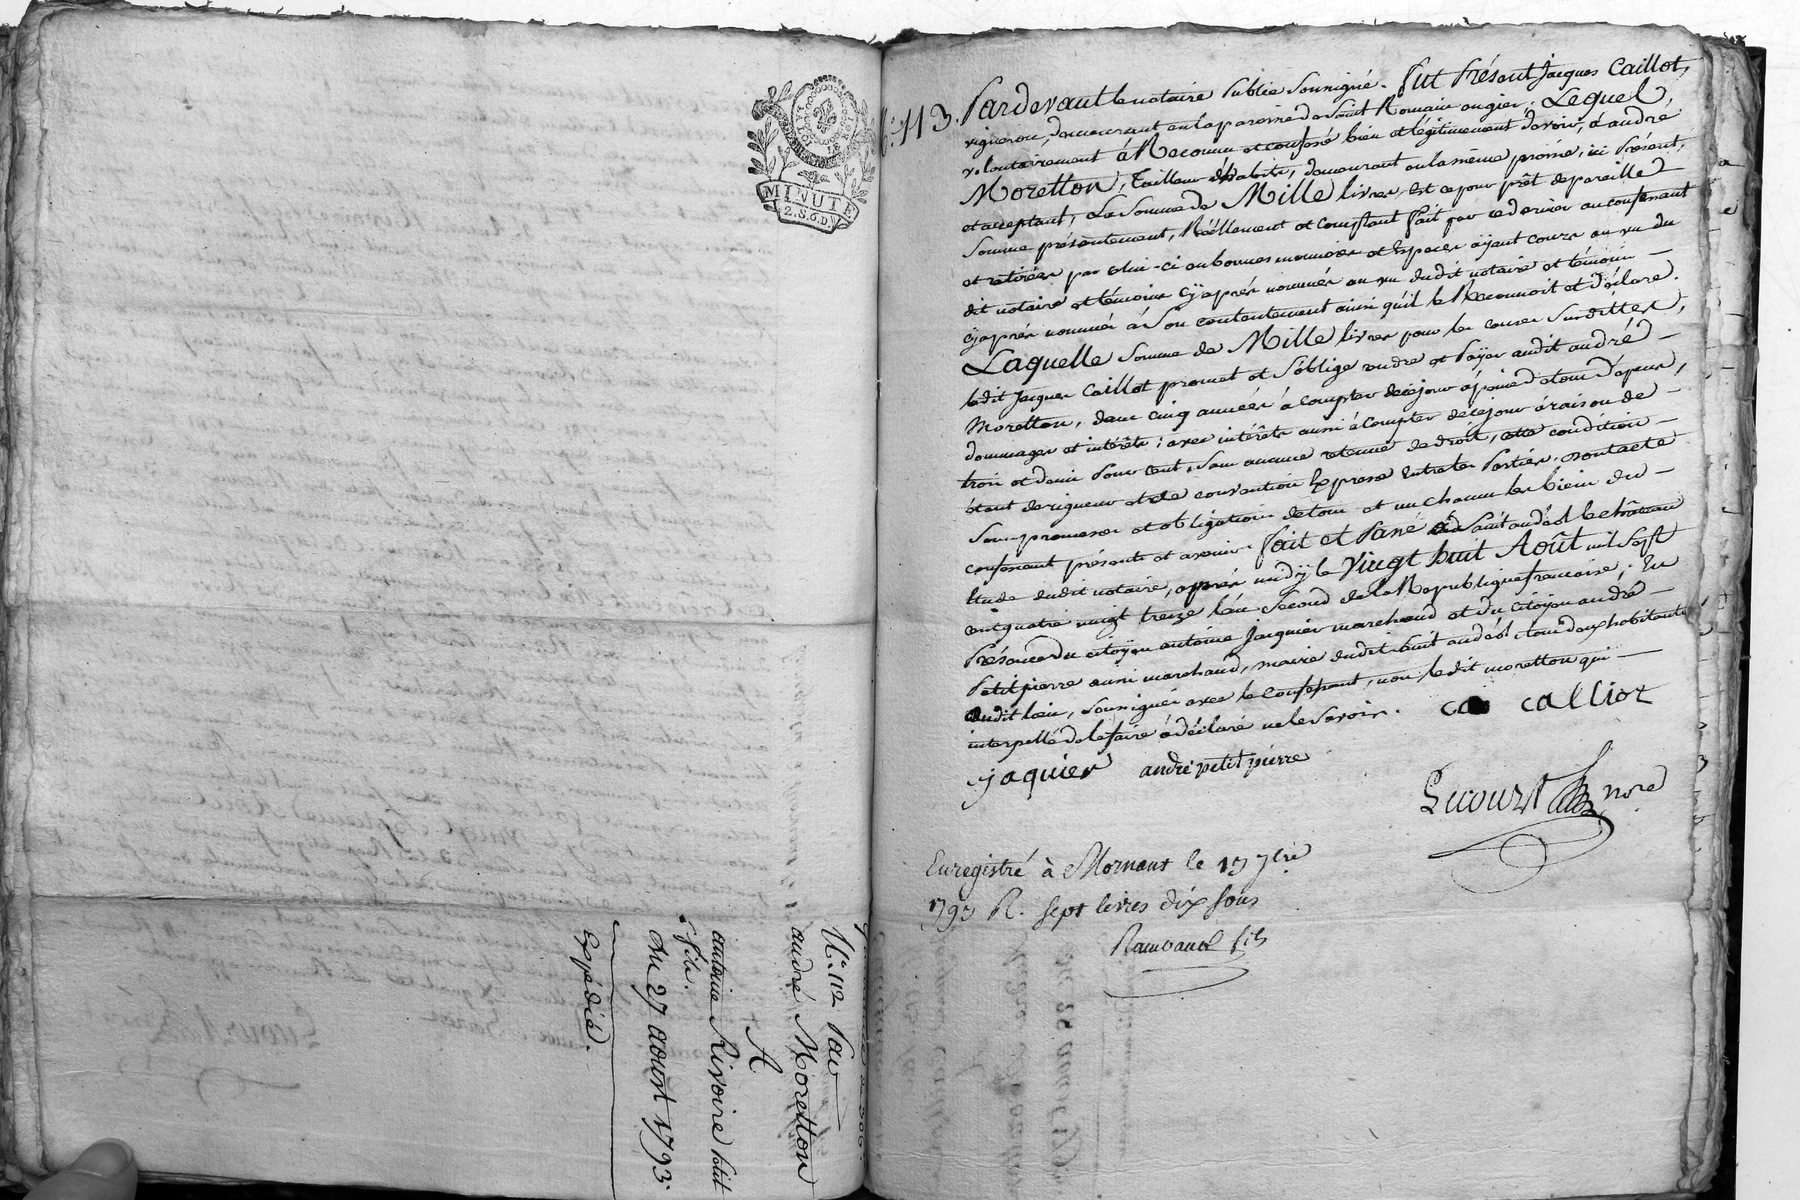 MINUTE
2.S.6.D.
N.° 112 Par
andré Moretton
A
antoine Rivoire petit
fils.
du 27 aoust 1793.
Expédié.
N.° 113. Pardevant le notaire Public soussigné. Fut Présent Jacques Caillot,
vigneron, demeurant en la paroisse de Saint Romain en gier. Lequel,
volontairement á Reconnu et confessé bien et légitimement devoir, á andré
Moretton, Tailleur d'habits, demeurant en la même paroisse, ici Présent,
et acceptant, La Somme de Mille livres, est ce pour prêt de pareille
Somme présentement, Réellement et comptant fait par ce dernier au confessant
et retirées par celui-ci en bonnes monnoies et Espèces ayant cours au vu du
dit notaire et témoins cyaprés nommés au vu dudit notaire et témoins
cyaprés nommés á Son contentement ainsi qu'il le Reconnoit et déclare.
Laquelle Somme de Mille livres pour les causes Susdittes,
ledit Jacques Caillot promet et S'oblige rendre et Payer audit andré
Moretton, dans cinq années á compter de ce jour á peine de tous dépens,
dommages et intérêts; avec intérêts aussi á compter de ce jour á raison de
trois et demi Pour cent, Sans aucune retenue de droit, cette condition
étant de rigueur et de convention Expresse Entre les Parties. dont acte
Sous promesses et obligations de tous et un chacun les biens du
confessant présents et avenir. Fait et Passé á Saint andéol le château
Etude dudit notaire, aprés midÿ le Vingt huit Août mil Sept
cent quatre vingt treize l'an Second de la République francoise; En
Présence du citoyen antoine Jaquier marchand et du citoyen andré
Petitpierre aussi marchand, maire dudit Saint andéol, tous deux habitants
audit lieu, Soussignés avec le confessant, non ledit moretton qui
interpellé de le faire á déclaré ne le Savoir. calliot
jaquier andré petit pierre
Lucourt nore
Enregistré à Mornant le 15 7bre
1793 R. sept livres dix sous
Rambaud fils